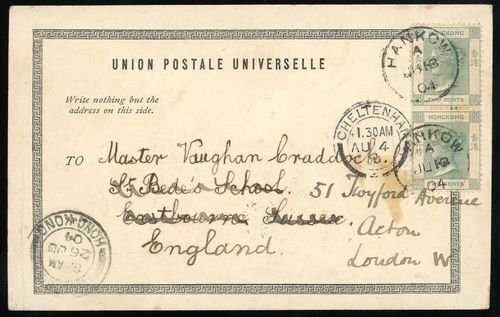 UNION POSTALE UNIVERSELLE
Write nothing but the
address on this side.
TO Master Vaughan Craddock
St. Bede's School.
Eastbourne Sussex
England.
51 Twyford Avenue
Acton
London W
HONGKONG
TWO CENTS
HONGKONG
CENTS
香港
HANKOW
A
04
HANKOW
A
04
CHELTENHAM
1.30AM
AU 4
HONG KONG
8. AM
04